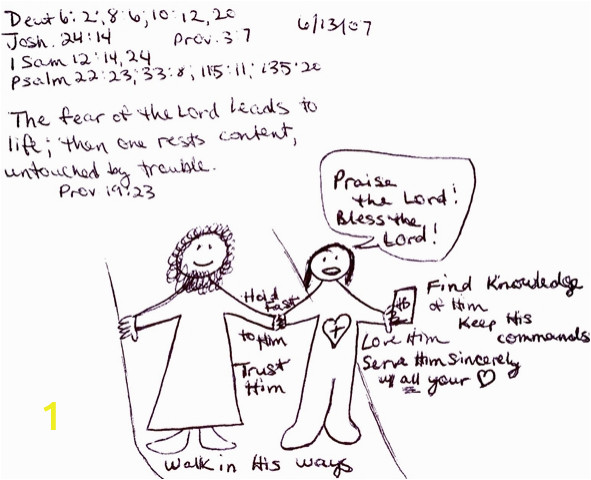 Deut 6:2; 8:6; 10:12, 20
6/13/07
Josh. 24:14 Prov. 3:7
1 Sam 12:14, 24
Psalm 22:23; 33:8; 115:11; 135:20
The fear of the Lord leads to
life; then one rests content,
untouched by trouble.
Prov 19:23
Praise
the Lord!
Bless the
Lord!
Hold
Fast
to Him
Trust
Him
Find Knowledge
of Him
Keep His
commands
Love Him
Serve Him sincerely
w/ all your ♡
Walk in His ways
1